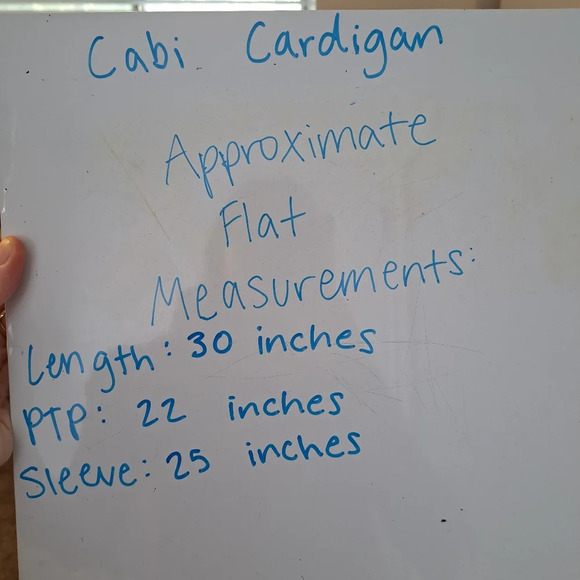 Cabi Cardigan
Approximate
Flat
Measurements:
Length: 30 inches
PTP: 22 inches
Sleeve: 25 inches